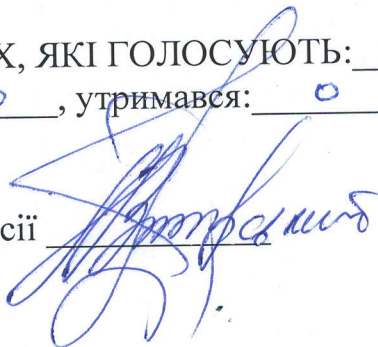 Х, ЯКІ ГОЛОСУЮТЬ:
, утримався: 0
сії